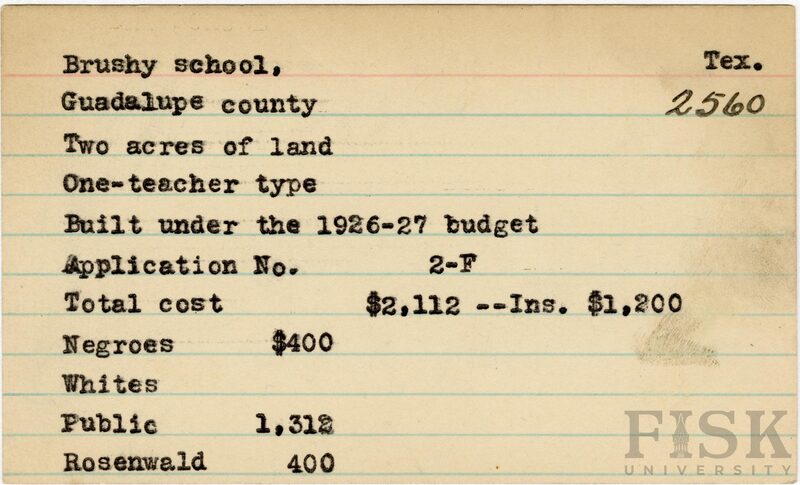 Brushy school, Tex.
Guadalupe county 2560
Two acres of land
One-teacher type
Built under the 1926-27 budget
Application No. 2-F
Total cost $2,112 --Ins. $1,200
Negroes $400
Whites
Public 1,312
Rosenwald 400
FISK
UNIVERSITY